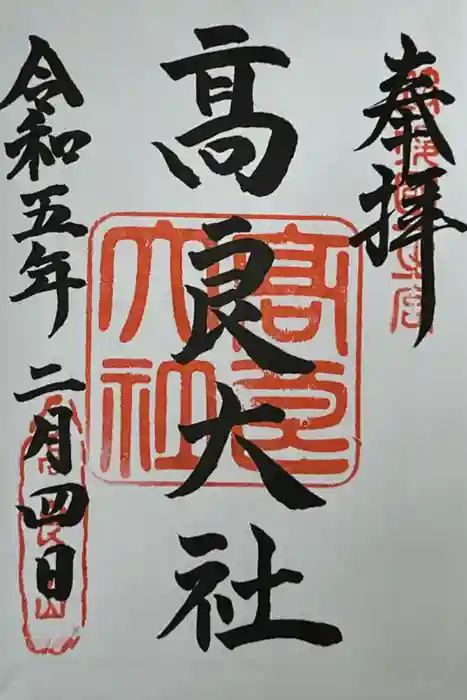 奉拝
高良大社
令和五年二月四日
高良大社